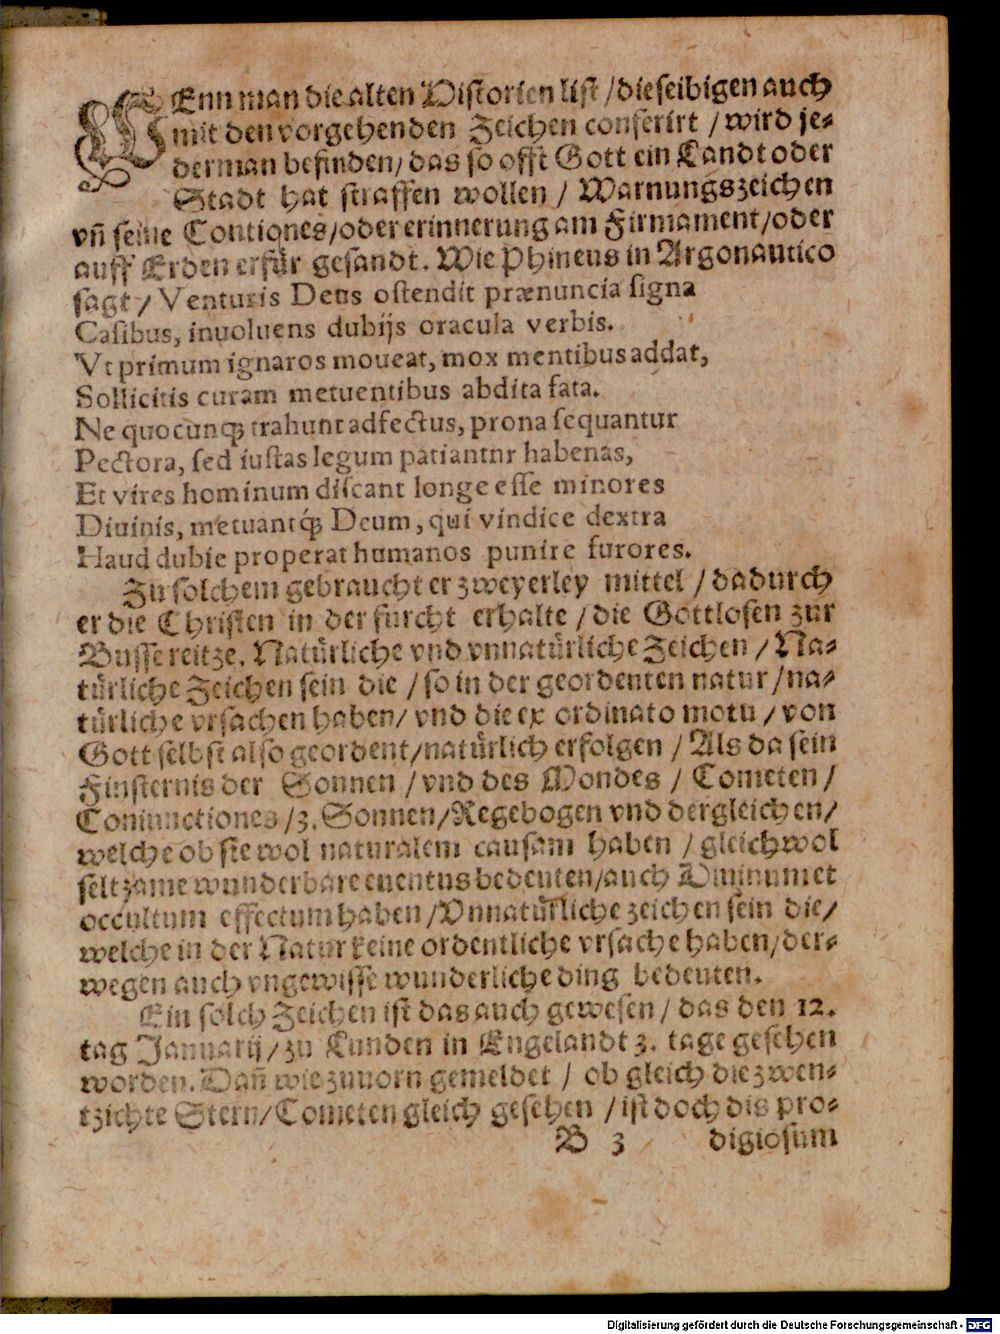 WEnn man die alten Historien list / dieselbigen auch
mit den vorgehenden Zeichen conferirt / wird je-
derman befinden / das so offt Gott ein Landt oder
Stadt hat straffen wollen / Warnungszeichen
vñ seine Contiones / oder erinnerung am Firmament / oder
auff Erden erfür gesandt. Wie Phineus in Argonautico
sagt / Venturis Deus ostendit prænuncia signa
Casibus, inuoluens dubijs oracula verbis.
Vt primum ignaros moueat, mox mentibus addat,
Sollicitis curam metuentibus abdita fata.
Ne quocunq; trahunt adfectus, prona sequantur
Pectora, sed iustas legum patiantnr habenas,
Et vires hominum discant longe esse minores
Diuinis, metuantq́; Deum, qui vindice dextra
Haud dubie properat humanos punire furores.
Zu solchem gebraucht er zweyerley mittel / dadurch
er die Christen in der furcht erhalte / die Gottlosen zur
Busse reitze. Natürliche vnd vnnatürliche Zeichen / Na-
türliche Zeichen sein die / so in der geordenten natur / na-
türliche vrsachen haben / vnd die ex ordinato motu / von
Gott selbst also geordent / natürlich erfolgen / Als da sein
Finsternis der Sonnen / vnd des Mondes / Cometen /
Coniunctiones / 3. Sonnen / Regebogen vnd dergleichen /
welche ob sie wol naturalem causam haben / gleichwol
seltzame wunderbare euentus bedeuten / auch Diuinum et
occultum effectum haben / Vnnatürliche zeichen sein die /
welche in der Natur keine ordentliche vrsache haben / der-
wegen auch vngewisse wunderliche ding bedeuten.
Ein solch Zeichen ist das auch gewesen / das den 12.
tag Januarij / zu Lunden in Engelandt 3. tage gesehen
worden. Dañ wie zuuorn gemeldet / ob gleich die zwen-
tzichte Stern / Cometen gleich gesehen / ist doch dis pro-
B 3 digiosum
Digitalisierung gefördert durch die Deutsche Forschungsgemeinschaft - DFG